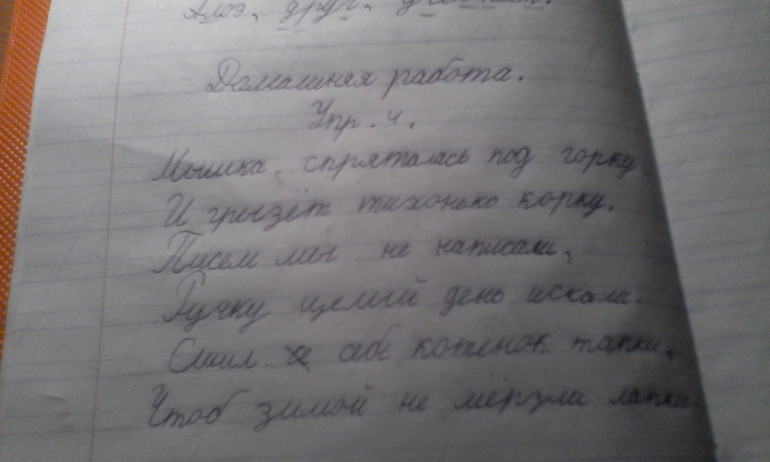 Алоэ, друг,
Домашняя работа.
Упр. 4.
Мышка спряталась под горку
И грызёт тихонько корку.
Писем мы не написали,
Ручку целый день искали.
Сшил себе котёнок тапки,
Чтоб зимой не мёрзли лапки.